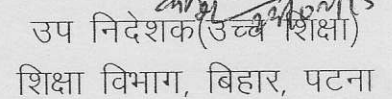 उप निदेशक(उच्च शिक्षा)
शिक्षा विभाग, बिहार, पटना